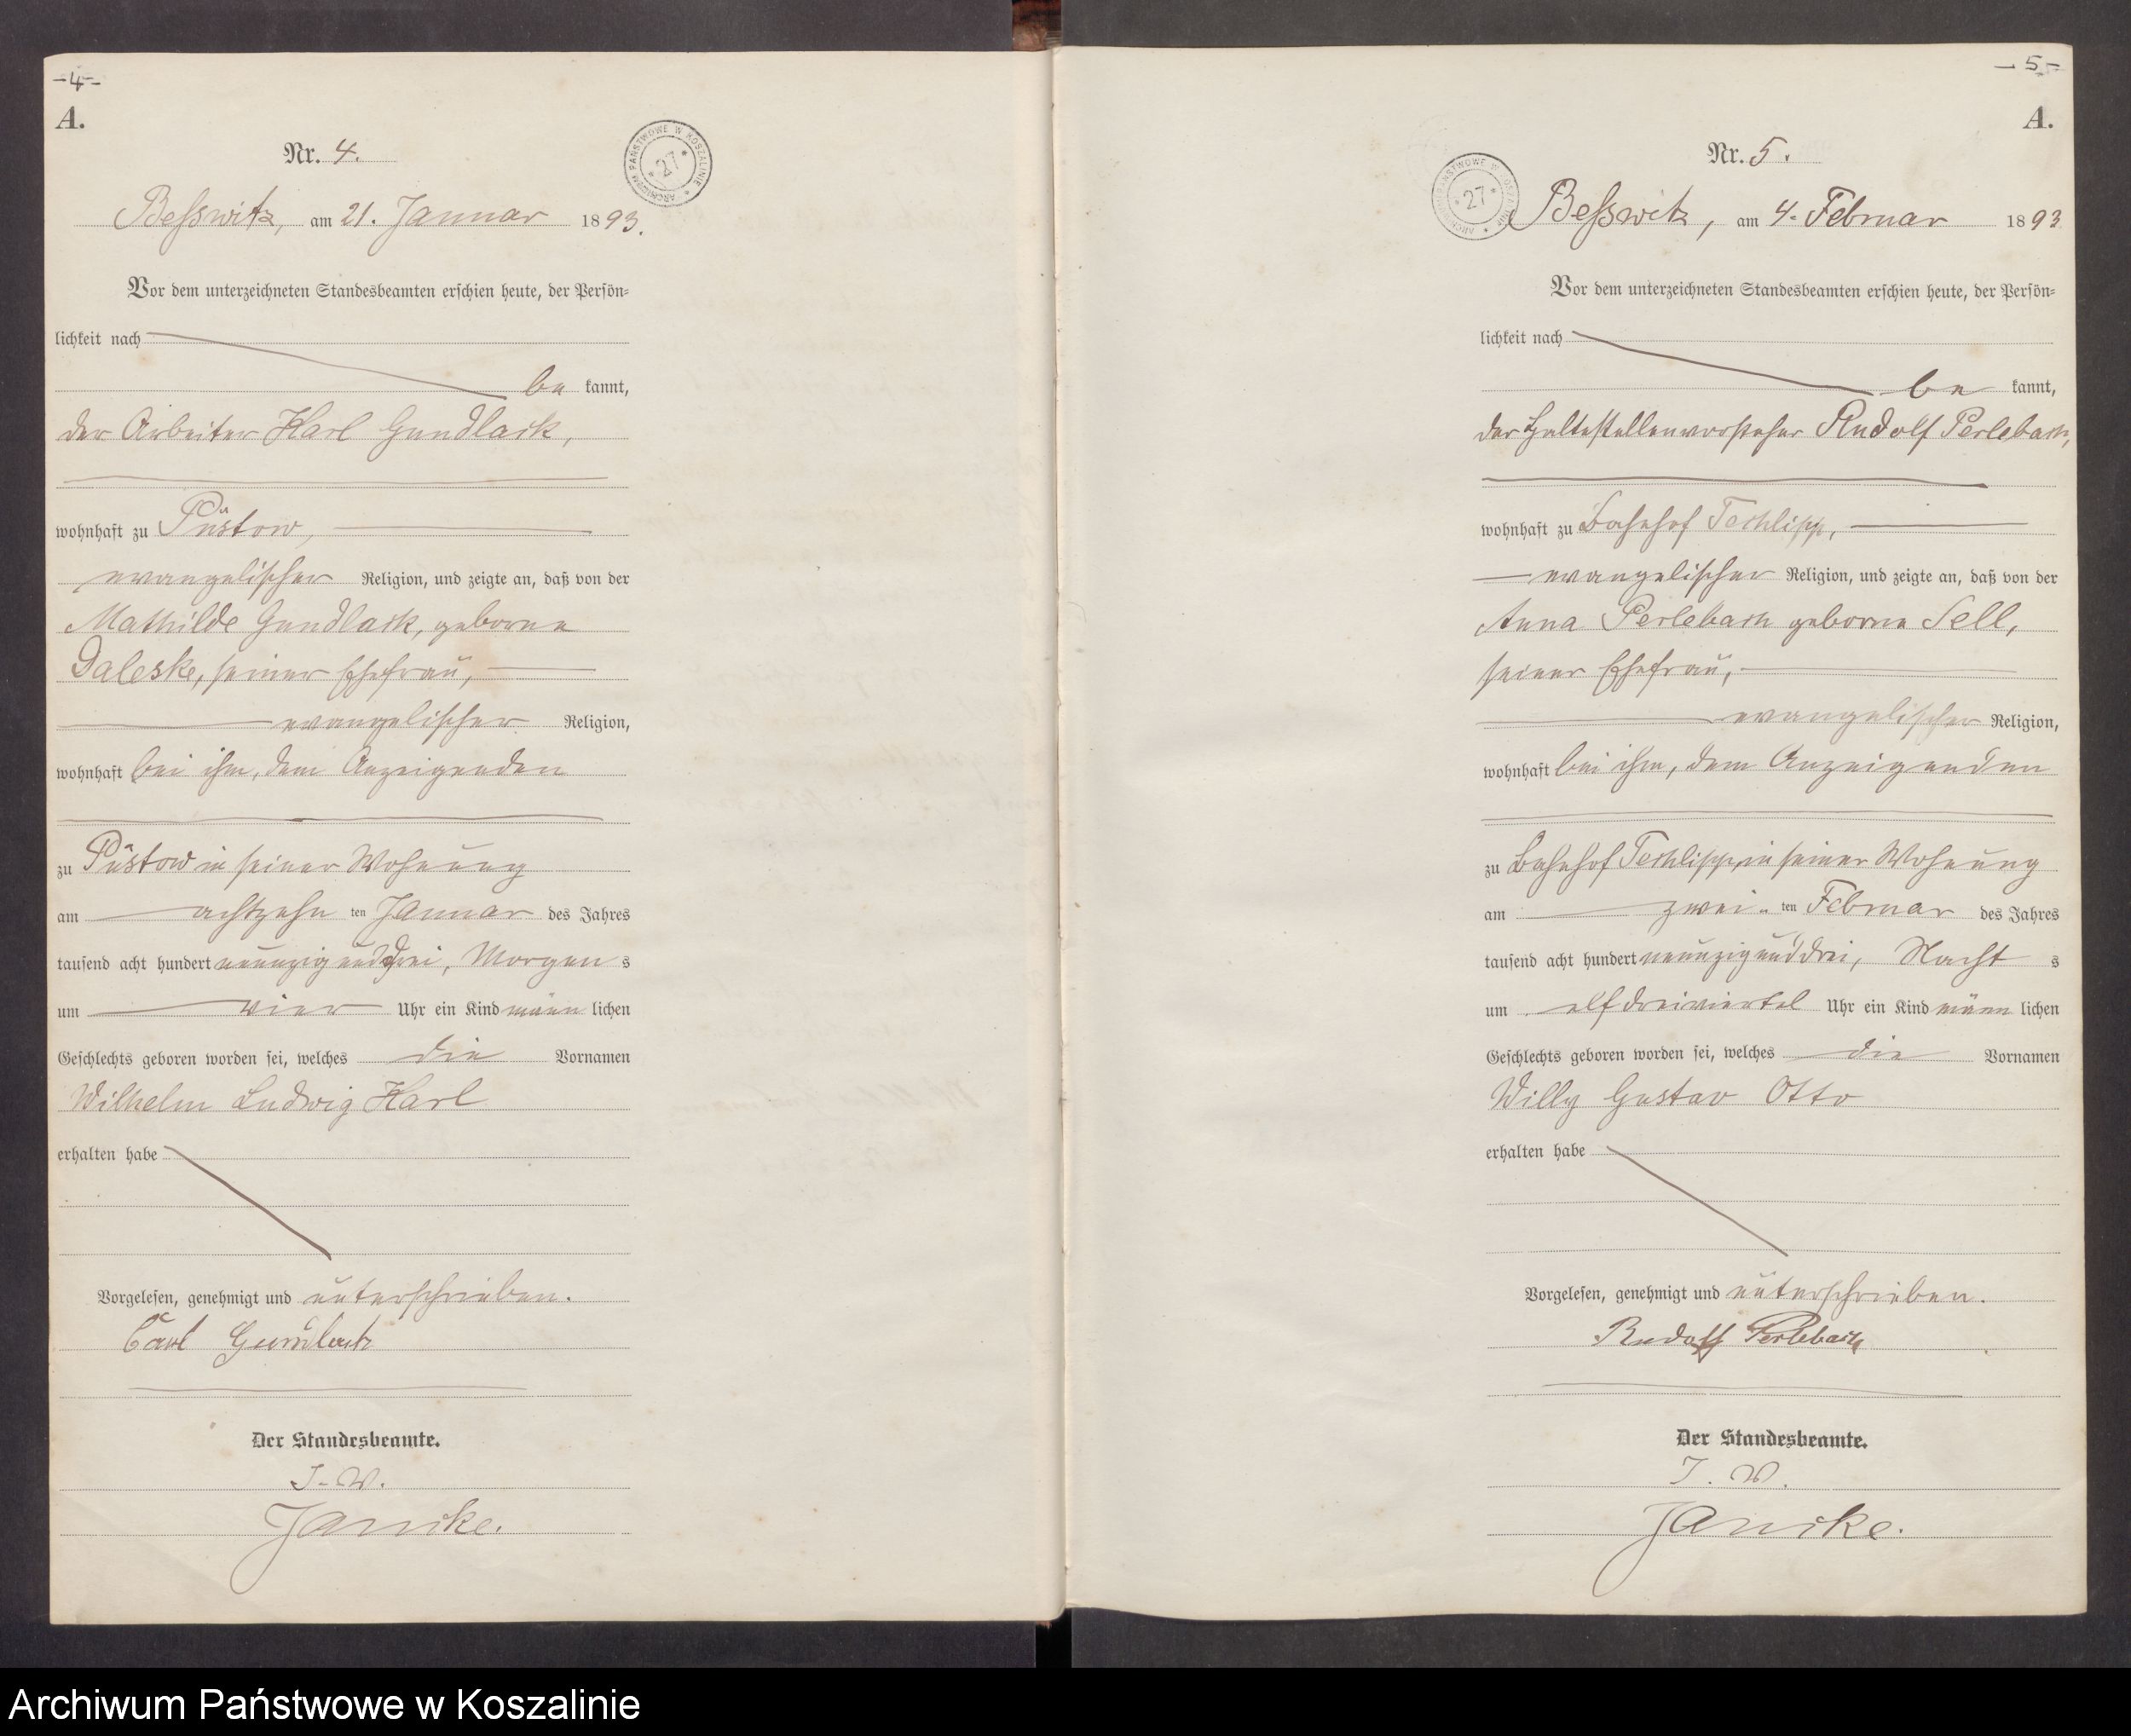 -4-
A.
Nr. 4.
ARCHIWUM PAŃSTWOWE W KOSZALINIE * 27 *
Beßwitz, am 21. Januar 1893.
Vor dem unterzeichneten Standesbeamten erschien heute, der Persön-
lichkeit nach
be kannt,
der Arbeiter Karl Gundlack,
wohnhaft zu Püstow,
evangelischer Religion, und zeigte an, daß von der
Mathilde Gundlack, geborne
Daleske, seiner Ehefrau,
evangelischer Religion,
wohnhaft bei ihm, dem Anzeigenden
zu Püstow in seiner Wohnung
am achtzehn ten Januar des Jahres
tausend acht hundert neunzig und drei, Morgen s
um vier Uhr ein Kind männ lichen
Geschlechts geboren worden sei, welches die Vornamen
Wilhelm Ludwig Karl
erhalten habe
Vorgelesen, genehmigt und unterschrieben.
Carl Gundlack
Der Standesbeamte.
J. W.
Jancke.
-5-
A.
Nr. 5.
ARCHIWUM PAŃSTWOWE W KOSZALINIE * 27 *
Beßwitz, am 4. Februar 1893
Vor dem unterzeichneten Standesbeamten erschien heute, der Persön-
lichkeit nach
be kannt,
der Haltestellenvorsteher Rudolf Perlebach,
wohnhaft zu Bahnhof Techlipp,
evangelischer Religion, und zeigte an, daß von der
Anna Perlebach geborne Sell,
seiner Ehefrau,
evangelischer Religion,
wohnhaft bei ihm, dem Anzeigenden
zu Bahnhof Techlipp, in seiner Wohnung
am zwei- ten Februar des Jahres
tausend acht hundert neunzig und drei, Nacht s
um elf dreiviertel Uhr ein Kind männ lichen
Geschlechts geboren worden sei, welches die Vornamen
Willy Gustav Otto
erhalten habe
Vorgelesen, genehmigt und unterschrieben.
Rudolf Perlebach
Der Standesbeamte.
J. W.
Jancke.
Archiwum Państwowe w Koszalinie